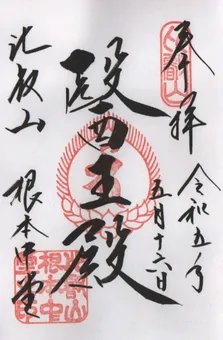 奉拝
令和五年
五月十六日
醫王殿
比叡山
根本中堂
比叡山
根本中堂